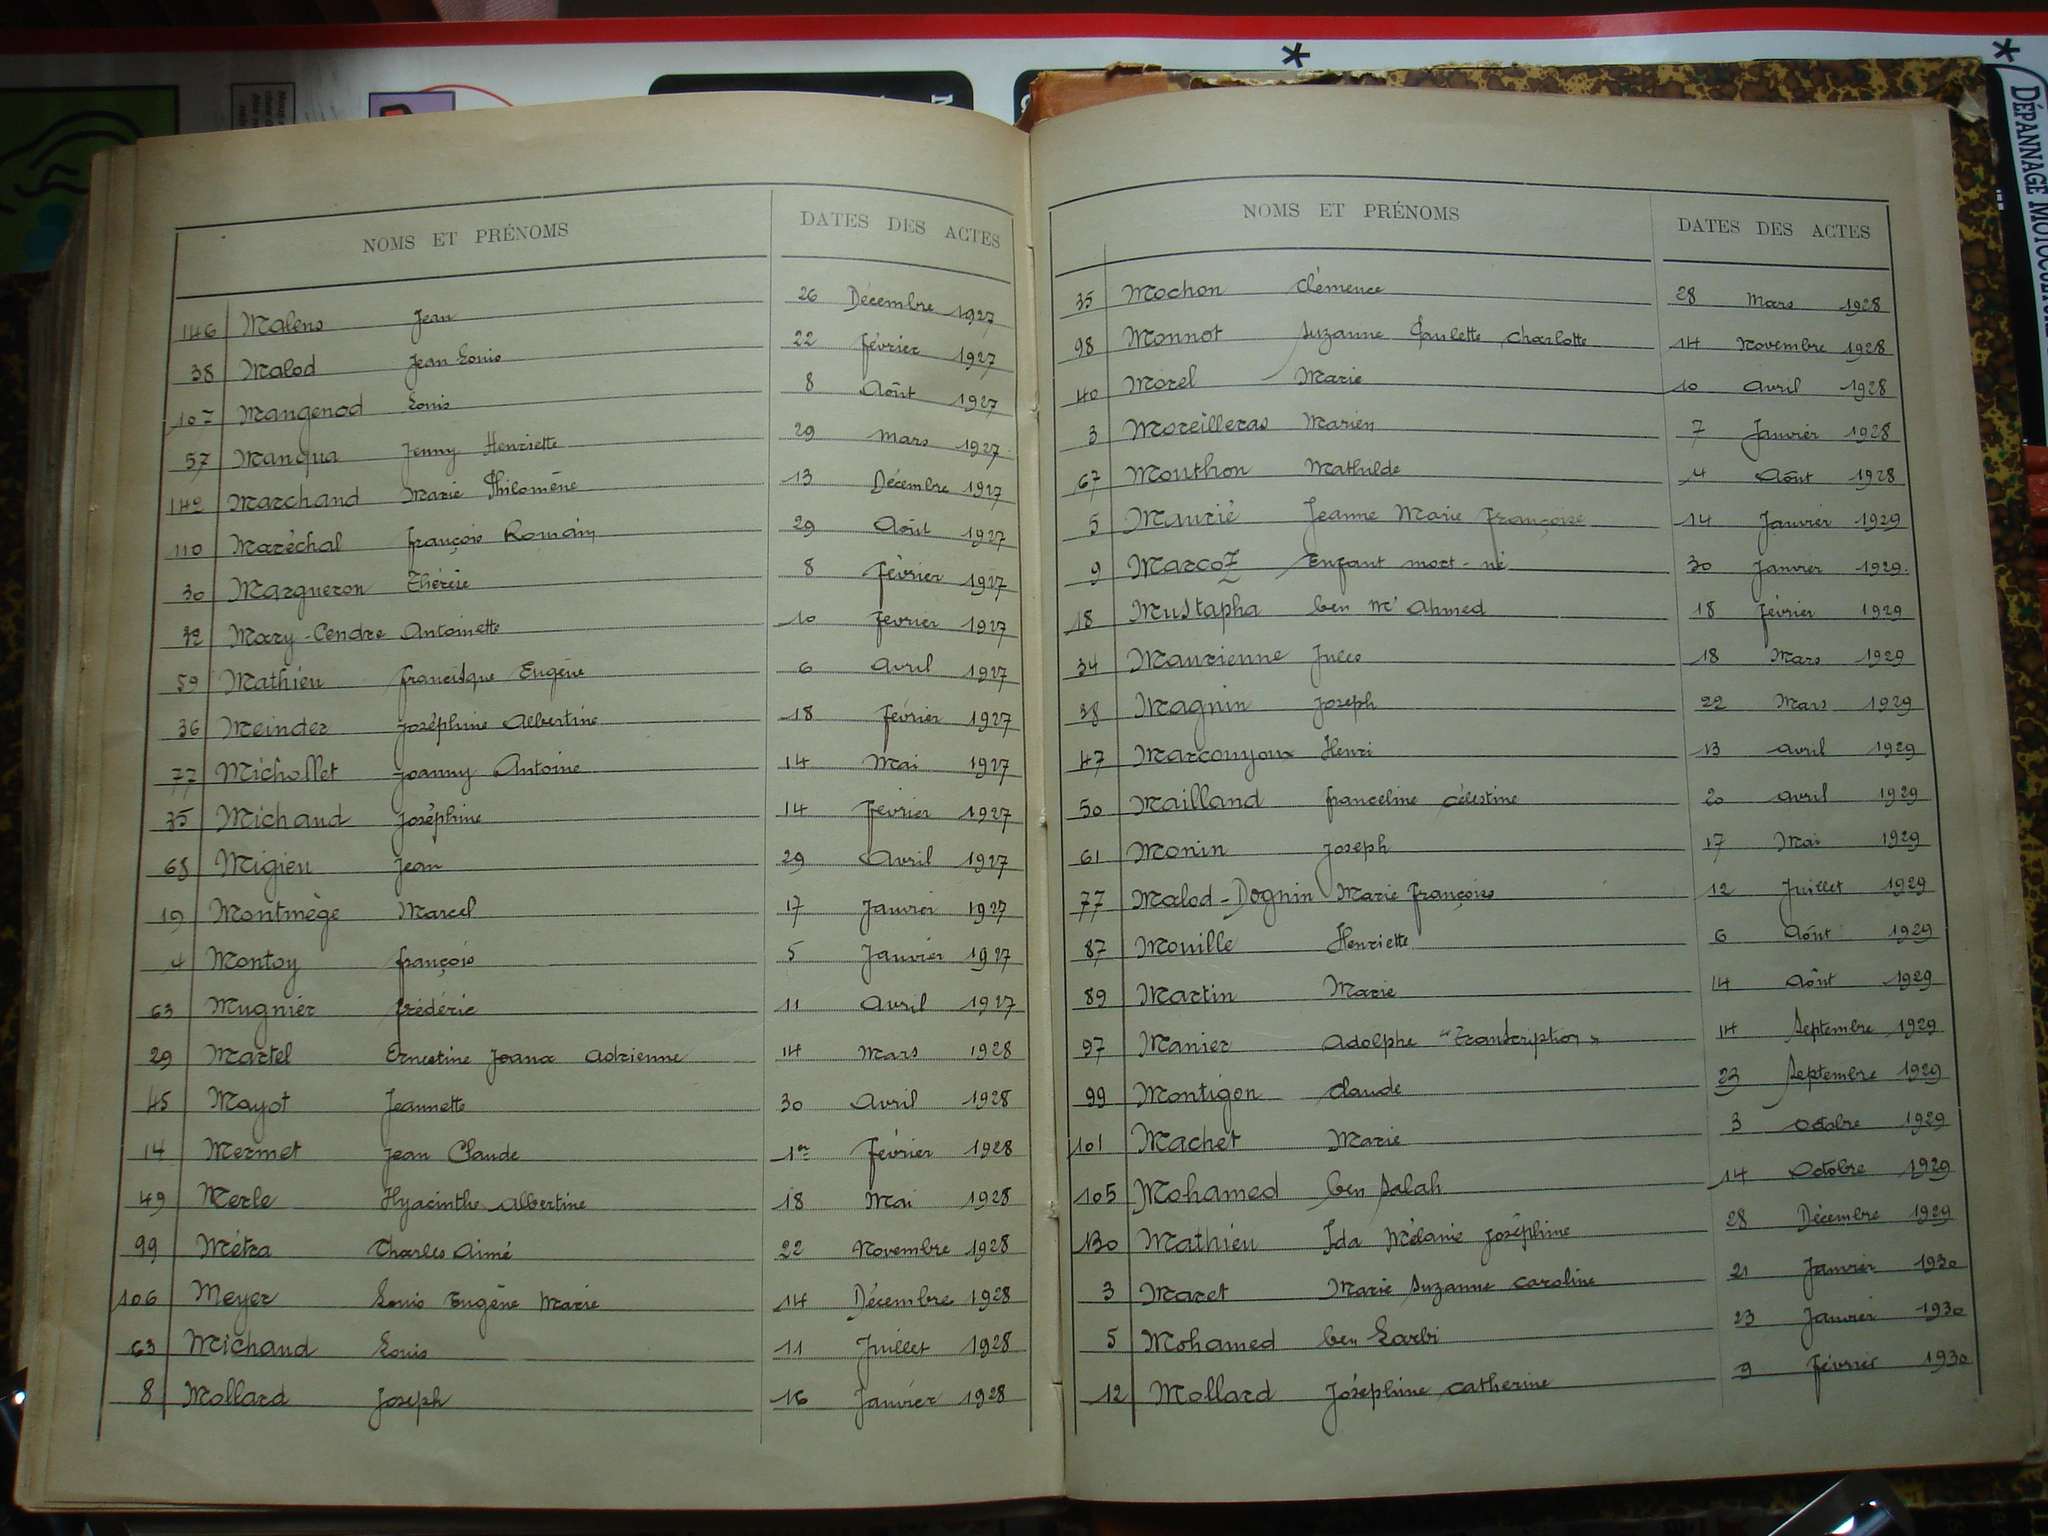 *
*
DÉPANNAGE MOTOCUL
NOMS ET PRÉNOMS DATES DES ACTES
146 Malens Jean 26 Décembre 1927
38 Malod Jean Louis 22 Février 1927
107 Mangenod Louis 8 Août 1927
57 Manqua Jenny Henriette 29 Mars 1927
142 Marchand Marie Philomène 13 Décembre 1927
110 Maréchal François Romain 29 Août 1927
30 Margueron Thérèse 8 Février 1927
32 Mary-Cendre Antoinette 10 Février 1927
59 Mathieu Francisque Eugène 6 Avril 1927
36 Meinder Joséphine Albertine 18 Février 1927
77 Michollet Joanny Antoine 14 Mai 1927
35 Michaud Joséphine 14 Février 1927
68 Migieu Jean 29 Avril 1927
19 Montmège Marcel 17 Janvier 1927
4 Montoy François 5 Janvier 1927
63 Mugnier Frédéric 11 Avril 1927
29 Martel Ernestine Joana Adrienne 14 Mars 1928
45 Mayot Jeannette 30 Avril 1928
14 Mermet Jean Claude 1er Février 1928
49 Merle Hyacinthe Albertine 18 Mai 1928
99 Métra Charles Aimé 22 Novembre 1928
106 Meyer Louis Eugène Marie 14 Décembre 1928
63 Michaud Louis 11 Juillet 1928
8 Mollard Joseph 16 Janvier 1928
NOMS ET PRÉNOMS DATES DES ACTES
35 Mochon Clémence 28 Mars 1928
98 Monnot Suzanne Paulette Charlotte 14 Novembre 1928
40 Morel Marie 10 Avril 1928
3 Moreilleras Marien 7 Janvier 1928
67 Mouthon Mathilde 4 Août 1928
5 Maurié Jeanne Marie Françoise 14 Janvier 1929
9 Marcoz Enfant mort-né 30 Janvier 1929.
18 Mustapha ben M' Ahmed 18 Février 1929
34 Maurienne Jules 18 Mars 1929
38 Magnin Joseph 22 Mars 1929
47 Marconyoux Henri 13 Avril 1929
50 Mailland Franceline Célestine 20 Avril 1929
61 Monin Joseph 17 Mai 1929
77 Malod-Dognin Marie François 12 Juillet 1929
87 Mouille Henriette 6 Août 1929
89 Martin Marie 14 Août 1929
97 Manier Adolphe "Transcription" 14 Septembre 1929
99 Montigon Claude 23 Septembre 1929
101 Machet Marie 3 Octobre 1929
105 Mohamed ben Salah 14 Octobre 1929
130 Mathieu Ida Mélanie Joséphine 28 Décembre 1929
3 Maret Marie Suzanne Caroline 21 Janvier 1930
5 Mohamed ben Larbi 23 Janvier 1930
12 Mollard Joséphine Catherine 9 Février 1930